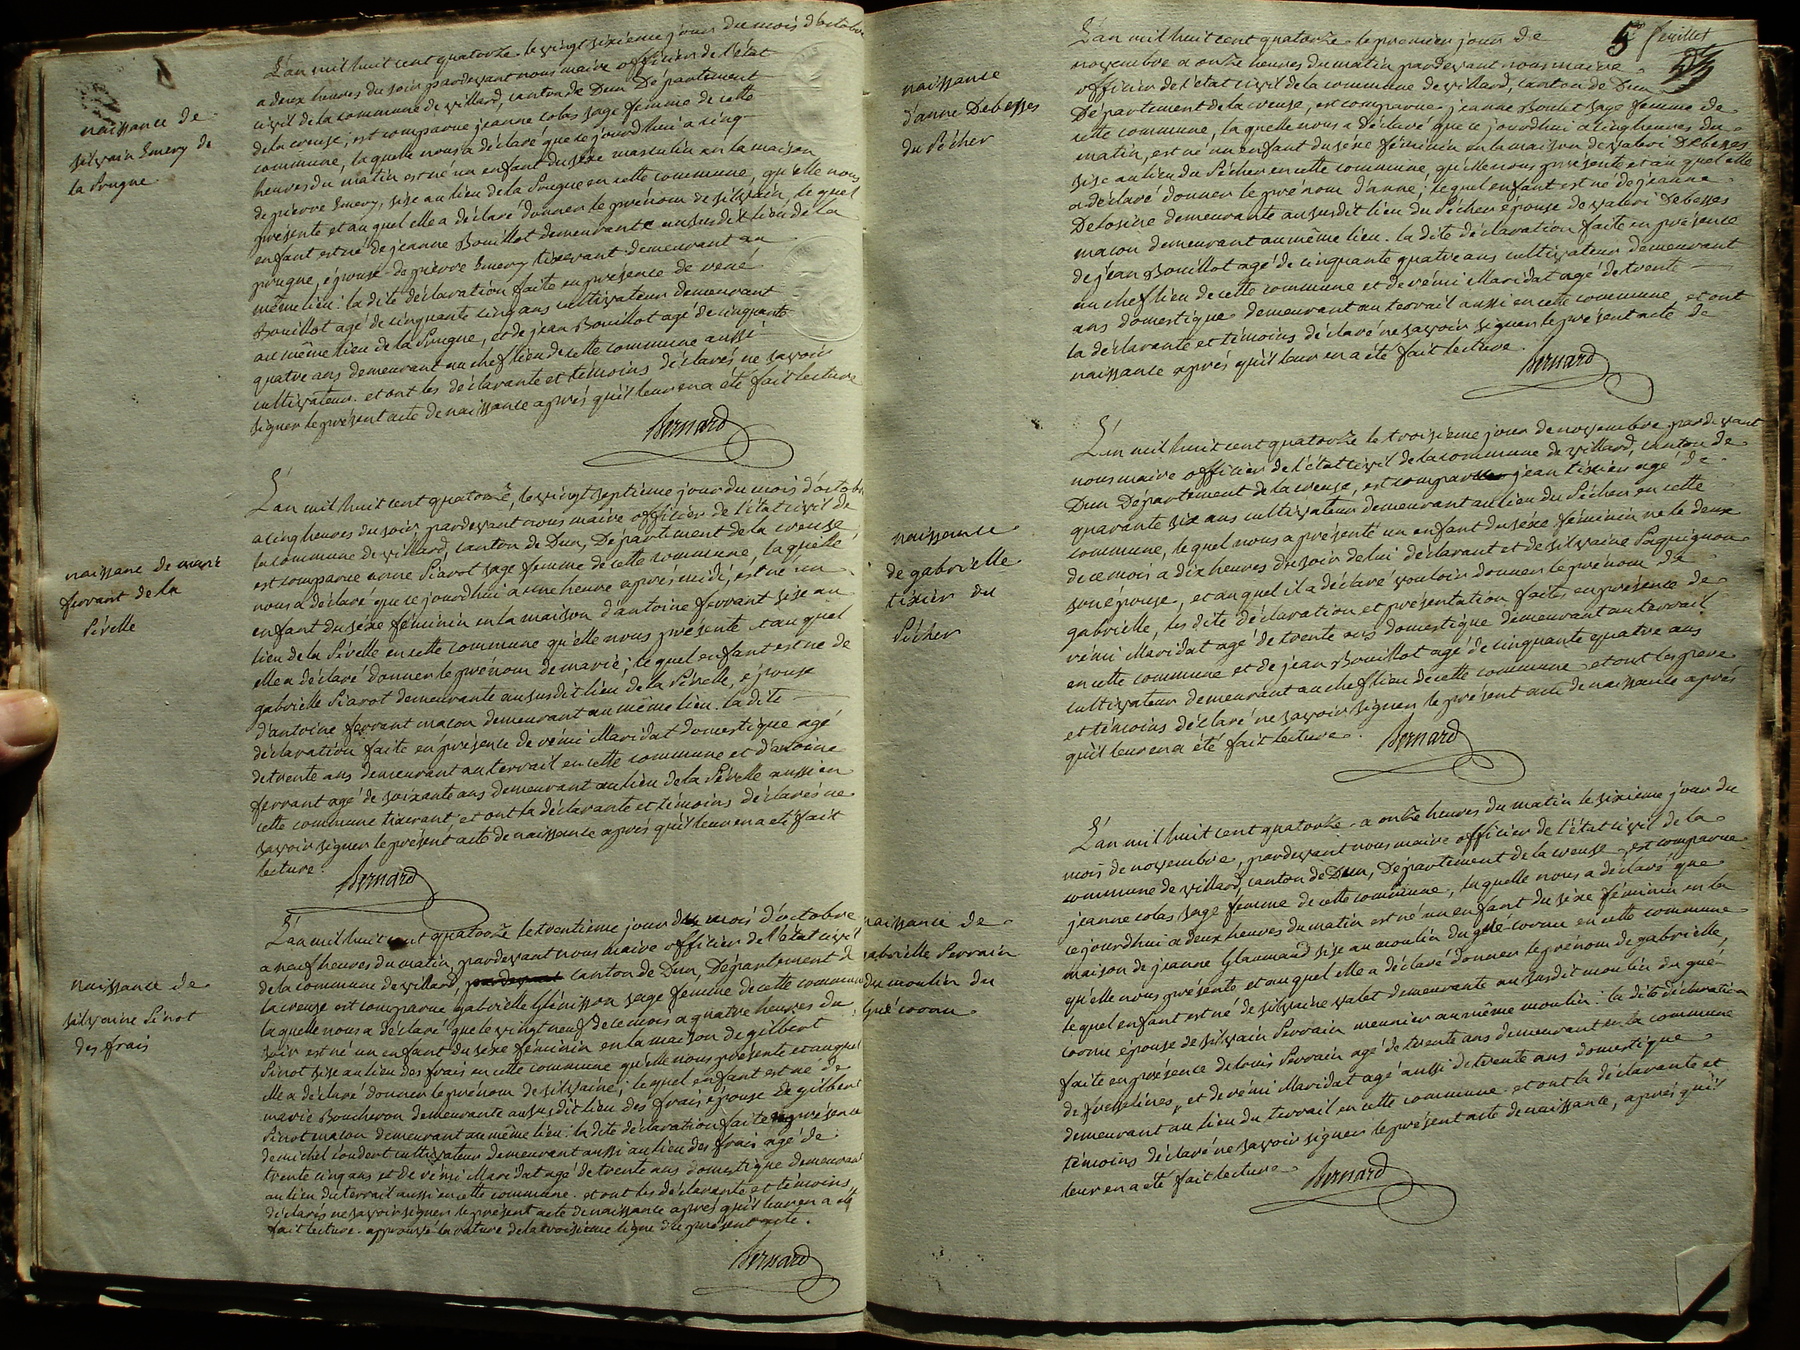 naissance de
silvain Emery de
la Prugne
L'an mil huit cent quatorze le vingt sixième jour du mois d'octobre
a deux heures du soir pardevant nous maire officier de l'état
civil de la commune de villard, canton de Dun Département
de la creuse, est comparue jeanne colas sage femme de cette
commune, la quelle nous a déclaré que ce jourdhui a cinq
heures du matin est né un enfant du sexe masculin en la maison
de pierre Emery, sise au lieu de la Prugne en cette commune, qu'elle nous
présente et au quel elle a déclaré donner le prénom de silvain, le quel
enfant est né de jeanne Bouillot demeurante au susdit lieu de la
prugne, épouse de pierre Emery tixerant demeurant au
même lieu : la dite déclaration faite en présence de rené
Bouillot agé de cinquante cinq ans cultivateur demeurant
au même lieu de la Prugne, et de jean Bouillot agé de cinquante
quatre ans demeurant au chef lieu de cette commune aussi
cultivateur. et ont les déclarante et témoins déclarés ne savoir
signer le présent acte de naissance après qu'il leur en a été fait lecture
Bernard
naissane de marie
ferrant de la
Pérelle
L'an mil huit cent quatorze, le vingt septième jour du mois d'octobre
a cinq heures du soir pardevant nous maire officier de l'état civil de
la commune de villard, canton de Dun, Département de la creuse
est comparue anne Piarot sage femme de cette commune, la quelle
nous a déclaré que ce jourdhui a une heure après midi, est né un
enfant du sexe féminin en la maison d'antoine ferrant sise au
lieu de la Pérelle en cette commune qu'elle nous présente et au quel
elle a déclaré donner le prénom de marie ; le quel enfant est né de
gabrielle Piarot demeurante au susdit lieu de la Pérelle, épouse
d'antoine ferrant macon demeurant au même lieu. la dite
déclaration faite en présence de rémi Maridat domestique agé
de trente ans demeurant au terrail en cette commune et d'antoine
ferrant agé de soixante ans demeurant au lieu de la Pérelle aussi en
cette commune tixerant et ont la déclarante et témoins déclarés ne
savoir signer le présent acte de naissance après qu'il leur en a été fait
lecture.
Bernard
naissance de
silvaine Pinot
des frais
L'an mil huit cent quatorze le trentième jour du mois d'octobre
a neuf heures du matin, pardevant nous maire officier de l'état civil
de la commune de villard, pardevant canton de Dun, Département de
la creuse est comparue gabrielle Glénisson sage femme de cette commune
la quelle nous a déclaré que le vingt neuf de ce mois a quatre heures du
soir est né un enfant du sexe féminin en la maison de gilbert
Pinot sise au lieu des frais en cette commune qu'elle nous présente et au quel
elle a déclaré donner le prénom de silvaine ; le quel enfant est né de
marie Boucheron demeurante au susdit lieu des frais épouse de gilbert
Pinot macon demeurant au même lieu : la dite déclaration faite en présence
de michel Coudert cultivateur demeurant aussi au lieu des frais agé de
trente cinq ans et de rémi Maridat agé de trente ans domestique demeurant
au lieu du terrail aussi en cette commune. et ont les déclarante et témoins
déclarés ne savoir signer le présent acte de naissance après qu'il leur en a été
fait lecture. approuvé la rature de la troisième ligne du présent acte.
Bernard
5e feuillet
naissance
d'anne Debesses
du Pécher
L'an mil huit cent quatorze le premier jour de
novembre a onze heures du matin pardevant nous maire
officier de l'état civil de la commune de villard, canton de Dun
Département de la creuse, est comparue jeanne Boulet sage femme de
cette commune, la quelle nous a déclaré que ce jourdhui a cinq heures du
matin, est né un enfant du sexe féminin en la maison de valeri Debesses
sise au lieu du Pécher en cette commune, qu'elle nous présente et au quel elle
a déclaré donner le prénom d'anne ; le quel enfant est né de jeanne
Delosire demeurante au susdit lieu du Pécher épouse de valeri Debesses
macon demeurant au même lieu. la dite déclaration faite en présence
de jean Bouillot agé de cinquante quatre ans cultivateur demeurant
au chef lieu de cette commune et de rémi Maridat agé de trente
ans domestique demeurant au terrail aussi en cette commune, et ont
la déclarante et témoins déclaré ne savoir signer le présent acte de
naissance après qu'il leur en a été fait lecture.
Bernard
naissance
de gabrielle
tixier du
Pécher
L'an mil huit cent quatorze le troisième jour de novembre pardevant
nous maire officier de l'état civil de la commune de villard, canton de
Dun Département de la creuse, est comparu jean tixier agé de
quarante six ans cultivateur demeurant au lieu du Pécher en cette
commune, le quel nous a présenté un enfant du sexe féminin né le deux
de ce mois a dix heures du soir de lui déclarant et de silvaine Paquignon
son épouse, et au quel il a déclaré vouloir donner le prénom de
gabrielle, les dite déclaration et présentation faite en présence de
rémi Maridat agé de trente ans domestique demeurant au terrail
en cette commune et de jean Bouillot agé de cinquante quatre ans
cultivateur demeurant au chef lieu de cette commune et ont les père
et témoins déclaré ne savoir signer le présent acte de naissance après
qu'il leur en a été fait lecture.
Bernard
naissance de
gabrielle Perrain
du moulin du
gué cornu
L'an mil huit cent quatorze a onze heures du matin le sixième jour du
mois de novembre, pardevant nous maire officier de l'état civil de la
commune de villard, canton de Dun, Département de la creuse est comparue
jeanne colas sage femme de cette commune, la quelle nous a déclaré que
ce jourdhui a deux heures du matin est né un enfant du sexe féminin en la
maison de jeanne Glaumaud sise au moulin du gué cornu en cette commune
qu'elle nous présente et au quel elle a déclaré donner le prénom de gabrielle,
le quel enfant est né de silvaine valet demeurante au susdit moulin du gué
cornu épouse de silvain Perrain meunier au même moulin : la dite déclaration
faite en présence de louis Perrain agé de trente ans demeurant en la commune
de fresselines, et de rémi Maridat agé aussi de trente ans domestique
demeurant au lieu du terrail en cette commune. et ont la déclarante et
témoins déclaré ne savoir signer le présent acte de naissance, après qu'il
leur en a été fait lecture
Bernard